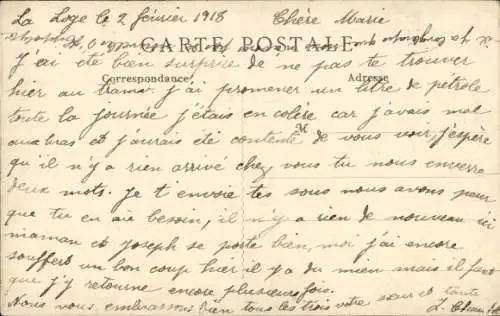 La Loge le 2 février 1918 Chère Marie
CARTE POSTALE
J'ai été bien surprise de ne pas te trouver
Correspondance Adresse
hier au tram j'ai promener un litre de pétrole
toute la journée j'étais en colère car j'avais mal
aux bras et j'aurais été contente de vous voir, j'espère
qu'il n'y a rien arrivé chez vous tu nous enverra
deux mots. Je t'envoie tes sous nous avons peur
que tu en aie besoin, il n'y a rien de nouveau ici
maman et Joseph se porte bien, moi j'ai encore
souffert un bon coup hier il y a du mieu mais il faut
que j'y retourne encore plusieurs fois.
Nous vous embrassons bien tous les trois votre sœur et tante